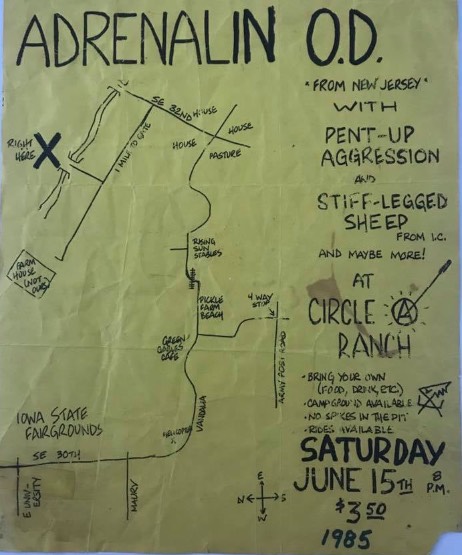 ADRENALIN O.D.
"FROM NEW JERSEY"
WITH
PENT-UP
AGGRESSION
AND
STIFF-LEGGED
SHEEP
FROM I.C.
AND MAYBE MORE!
AT
CIRCLE A
RANCH
• BRING YOUR OWN
(FOOD, DRINK, ETC.)
• CAMPGROUND AVAILABLE
• NO SPIKES IN THE PIT
• RIDES AVAILABLE
SATURDAY
JUNE 15TH 8 P.M.
$3.50
1985
SE 32ND
HOUSE
HOUSE
HOUSE
PASTURE
RIGHT
HERE X
1 MILE TO GATE
FARM
HOUSE
(NOT
OURS)
RISING
SUN
STABLES
PICKLE
FARM
BEACH
4 WAY
STOP
GREEN
GABLES
CAFE
ARMY POST ROAD
VANDALIA
IOWA STATE
FAIRGROUNDS
SE 30TH
E UNIV-
ERSITY
MAURY
E
N S
W